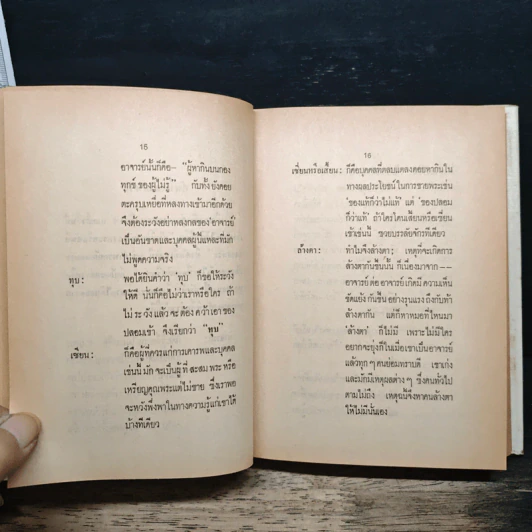 15
อาจารย์นั้นก็คือ— "ผู้หากินบนกอง
ทุกข์ ของผู้ไม่รู้" กับทั้งยังคอย
ตะครุบเหยื่อที่หลงทางเข้ามาอีกด้วย
จึงต้องระวังอย่าหลงกลของ อาจารย์
เป็นอันขาดและบุคคลผู้นี้แหละที่มัก
ไม่พูดความจริง
ทุบ: พอได้ยินคำว่า 'ทุบ' ก็ขอให้ระวัง
ให้ดี นั่นก็คือไม่ว่าเราหรือใคร ถ้า
ไม่ ระวัง แล้ว จะ ต้อง คว้า เอา ของ
ปลอมเข้า จึงเรียกว่า "ทุบ"
เซียน: ก็คือผู้ที่ควรแก่การเคารพและบุคคล
เช่นนี้ มัก จะเป็น ผู้ ที่ สะสม พระ หรือ
เหรียญคุณพระแต่ไม่ขาย ซึ่งเราพอ
จะหวังพึ่งพาในทางความรู้แก่เขาได้
บ้างทีเดียว
16
เซียนหรือเสี้ยน: ก็คือบุคคลที่ตลบแตลงคอยหากินใน
ทางผลประโยชน์ ในการขายพระเช่น
'ของแท้ก็ว่าไม่แท้' แต่ 'ของปลอม
ก็ว่าแท้' ถ้าใครโดนเสี้ยนหรือเซียน
เข้าเช่นนี้ ชวยบรรลัยจักรทีเดียว
ล้างตา: ทำไมจึงล้างตา; เหตุที่จะเกิดการ
ล้างตากันขึ้นนั้น ก็เนื่องมาจาก——
อาจารย์ ต่อ อาจารย์ เกิดมี ความเห็น
ขัดแย้ง กันขึ้น อย่างรุนแรง ถึงกับท้า
ล้างตากัน แต่ก็หาหมอที่ไหนมา
'ล้างตา' ก็ไม่มี เพราะไม่มีใคร
อยากจะยุ่งก็ในเมื่อเขาเป็นอาจารย์
แล้วทุก ๆ คนย่อมทราบดี เขาเก่ง
และมักมีเหตุผลต่าง ๆ ซึ่งคนทั่วไป
ตามไม่ถึง เหตุฉะนี้จึงหาคนล้างตา
ให้ไม่มีนั่นเอง